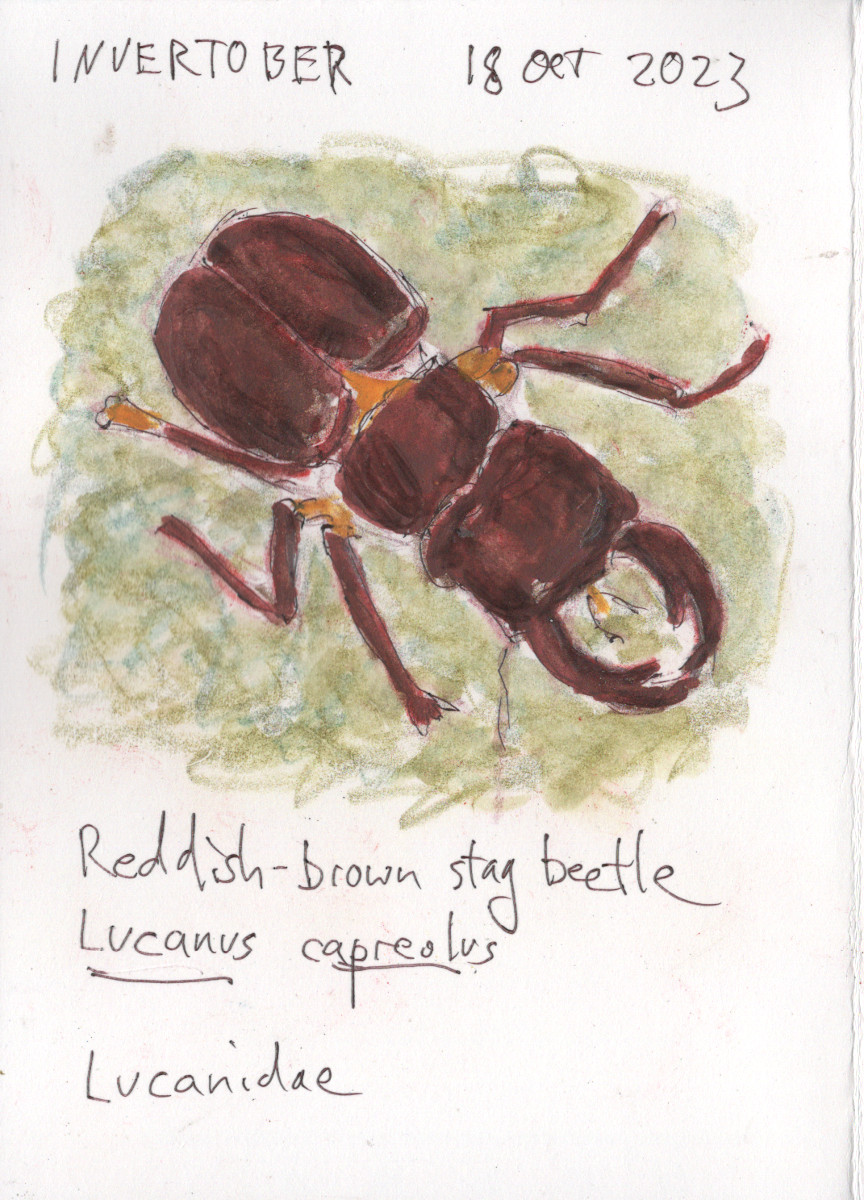 INVERTOBER 18 Oct 2023
Reddish-brown stag beetle
Lucanus capreolus
Lucanidae